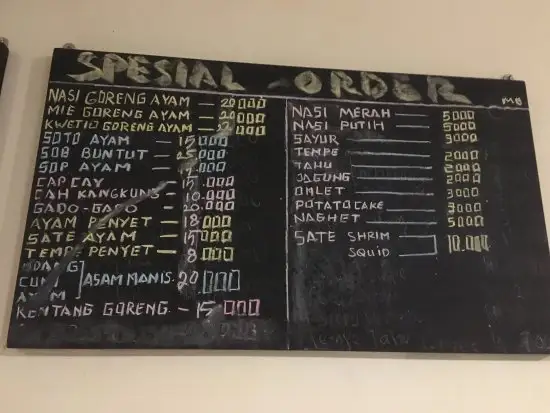 SPESIAL - ORDER
MB
NASI GORENG AYAM — 20000
MIE GORENG AYAM — 20000
KWETIO GORENG AYAM — 000
SOTO AYAM — 15000
SOB BUNTUT — 25000
SOP AYAM — 000
CAP CAY — 15.000
CAH KANGKUNG — 10.000
GADO-GADO — 20.000
AYAM PENYET — 18000
SATE AYAM — 15000
TEMPE PENYET — 8000
UDANG
CUMI ASAM MANIS. 20.000
AYAM
KENTANG GORENG. — 15000
NASI MERAH — 5000
NASI PUTIH — 5000
SAYUR — 3000
TEMPE — 2000
TAHU — 2000
JAGUNG — 2000
OMLET — 3000
POTATO CAKE — 3000
NAGHET — 5000
SATE SHRIM 10.000
SQUID